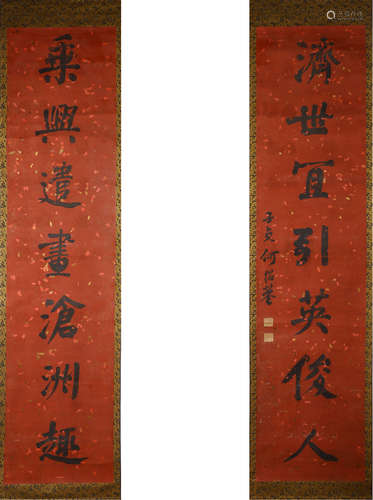 濟世宜引英俊人
乘興遣畫滄洲趣
子貞何紹基